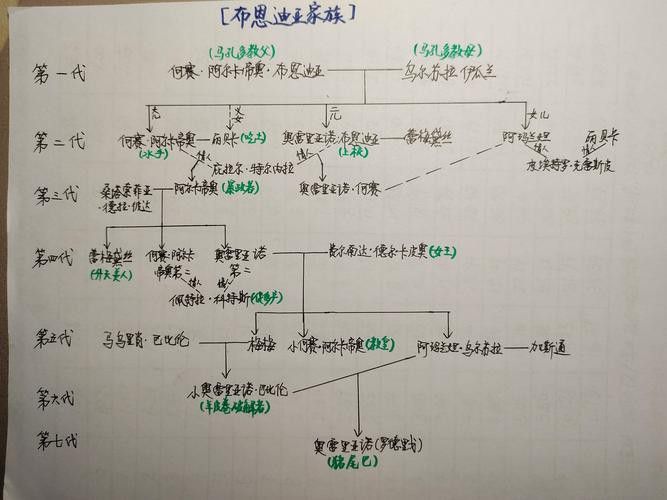 [布恩迪亚家族]
(马孔多教父) (马孔多教母)
第一代 何赛·阿尔卡蒂奥·布恩迪亚 乌尔苏拉·伊瓜兰
义女 女儿
第二代 何赛·阿尔卡蒂奥 丽贝卡(吃土) 奥雷里亚诺·布恩迪亚 蕾梅黛丝 阿玛兰妲 丽贝卡
(水手) 情人 情人 (上校) 情人 情人
庇拉尔·特尔内拉 皮埃特罗·克雷斯皮
第三代 桑塔索菲亚 阿尔卡蒂奥(暴政者) 奥雷里亚诺·何赛
·德拉·彼达
第四代 蕾梅黛丝 何赛·阿尔卡 奥雷里亚诺 费尔南达·德尔·卡皮奥(女王)
(升天美人) 蒂奥第二 第二
情人 情人
佩特拉·科特斯
第五代 马乌里肖·巴比伦 梅梅 小何赛·阿尔卡蒂奥(教皇) 阿玛兰妲·乌尔苏拉 加斯通
第六代 小奥雷里亚诺·巴比伦
(羊皮卷破解者)
第七代 奥雷里亚诺(罗德里戈)
(猪尾巴)